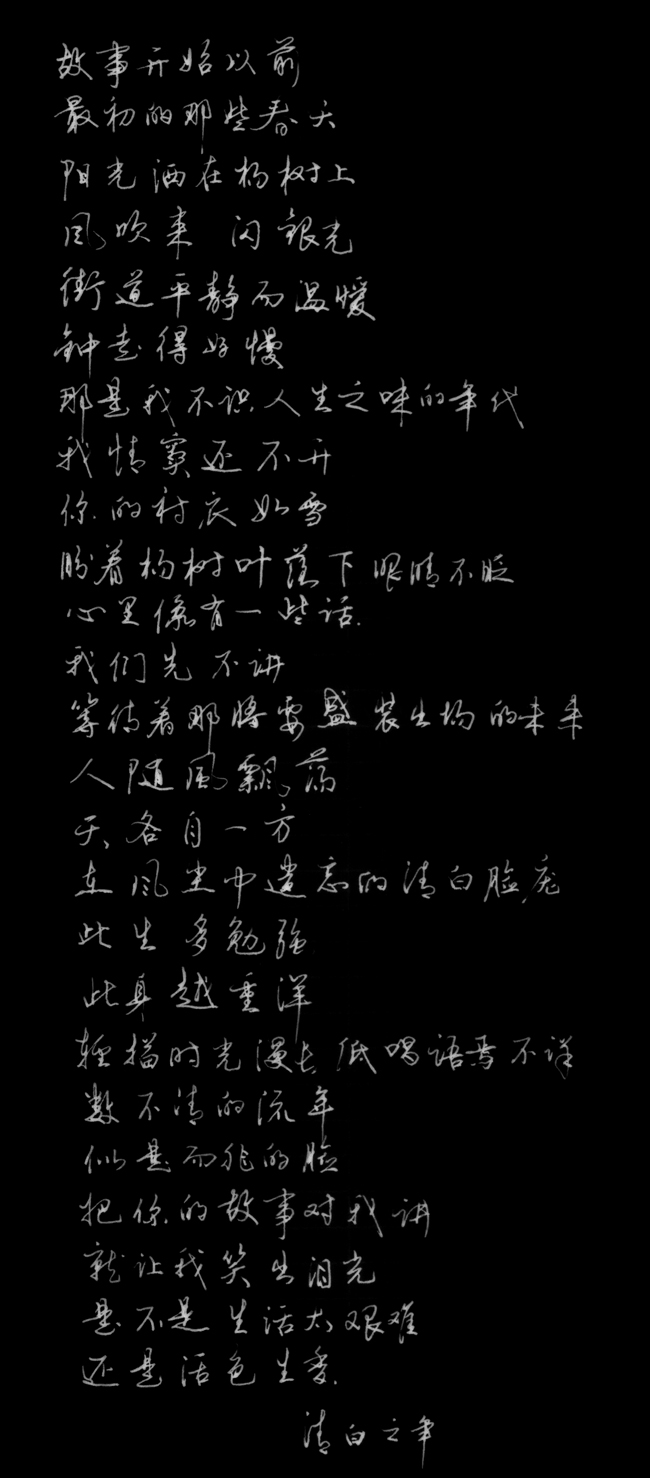 故事开始以前
最初的那些春天
阳光洒在杨树上
风吹来 闪银光
街道平静而温暖
钟走得好慢
那是我不识人生之味的年代
我情窦还不开
你的衬衣如雪
盼着杨树叶落下 眼睛不眨
心里像有一些话
我们先不讲
等待着那将要盛装出场的未来
人随风飘荡
天各自一方
在风尘中遗忘的清白脸庞
此生多勉强
此身越重洋
轻描时光漫长 低唱语焉不详
数不清的流年
似是而非的脸
把你的故事对我讲
就让我笑出泪光
是不是生活太艰难
还是活色生香
清白之年